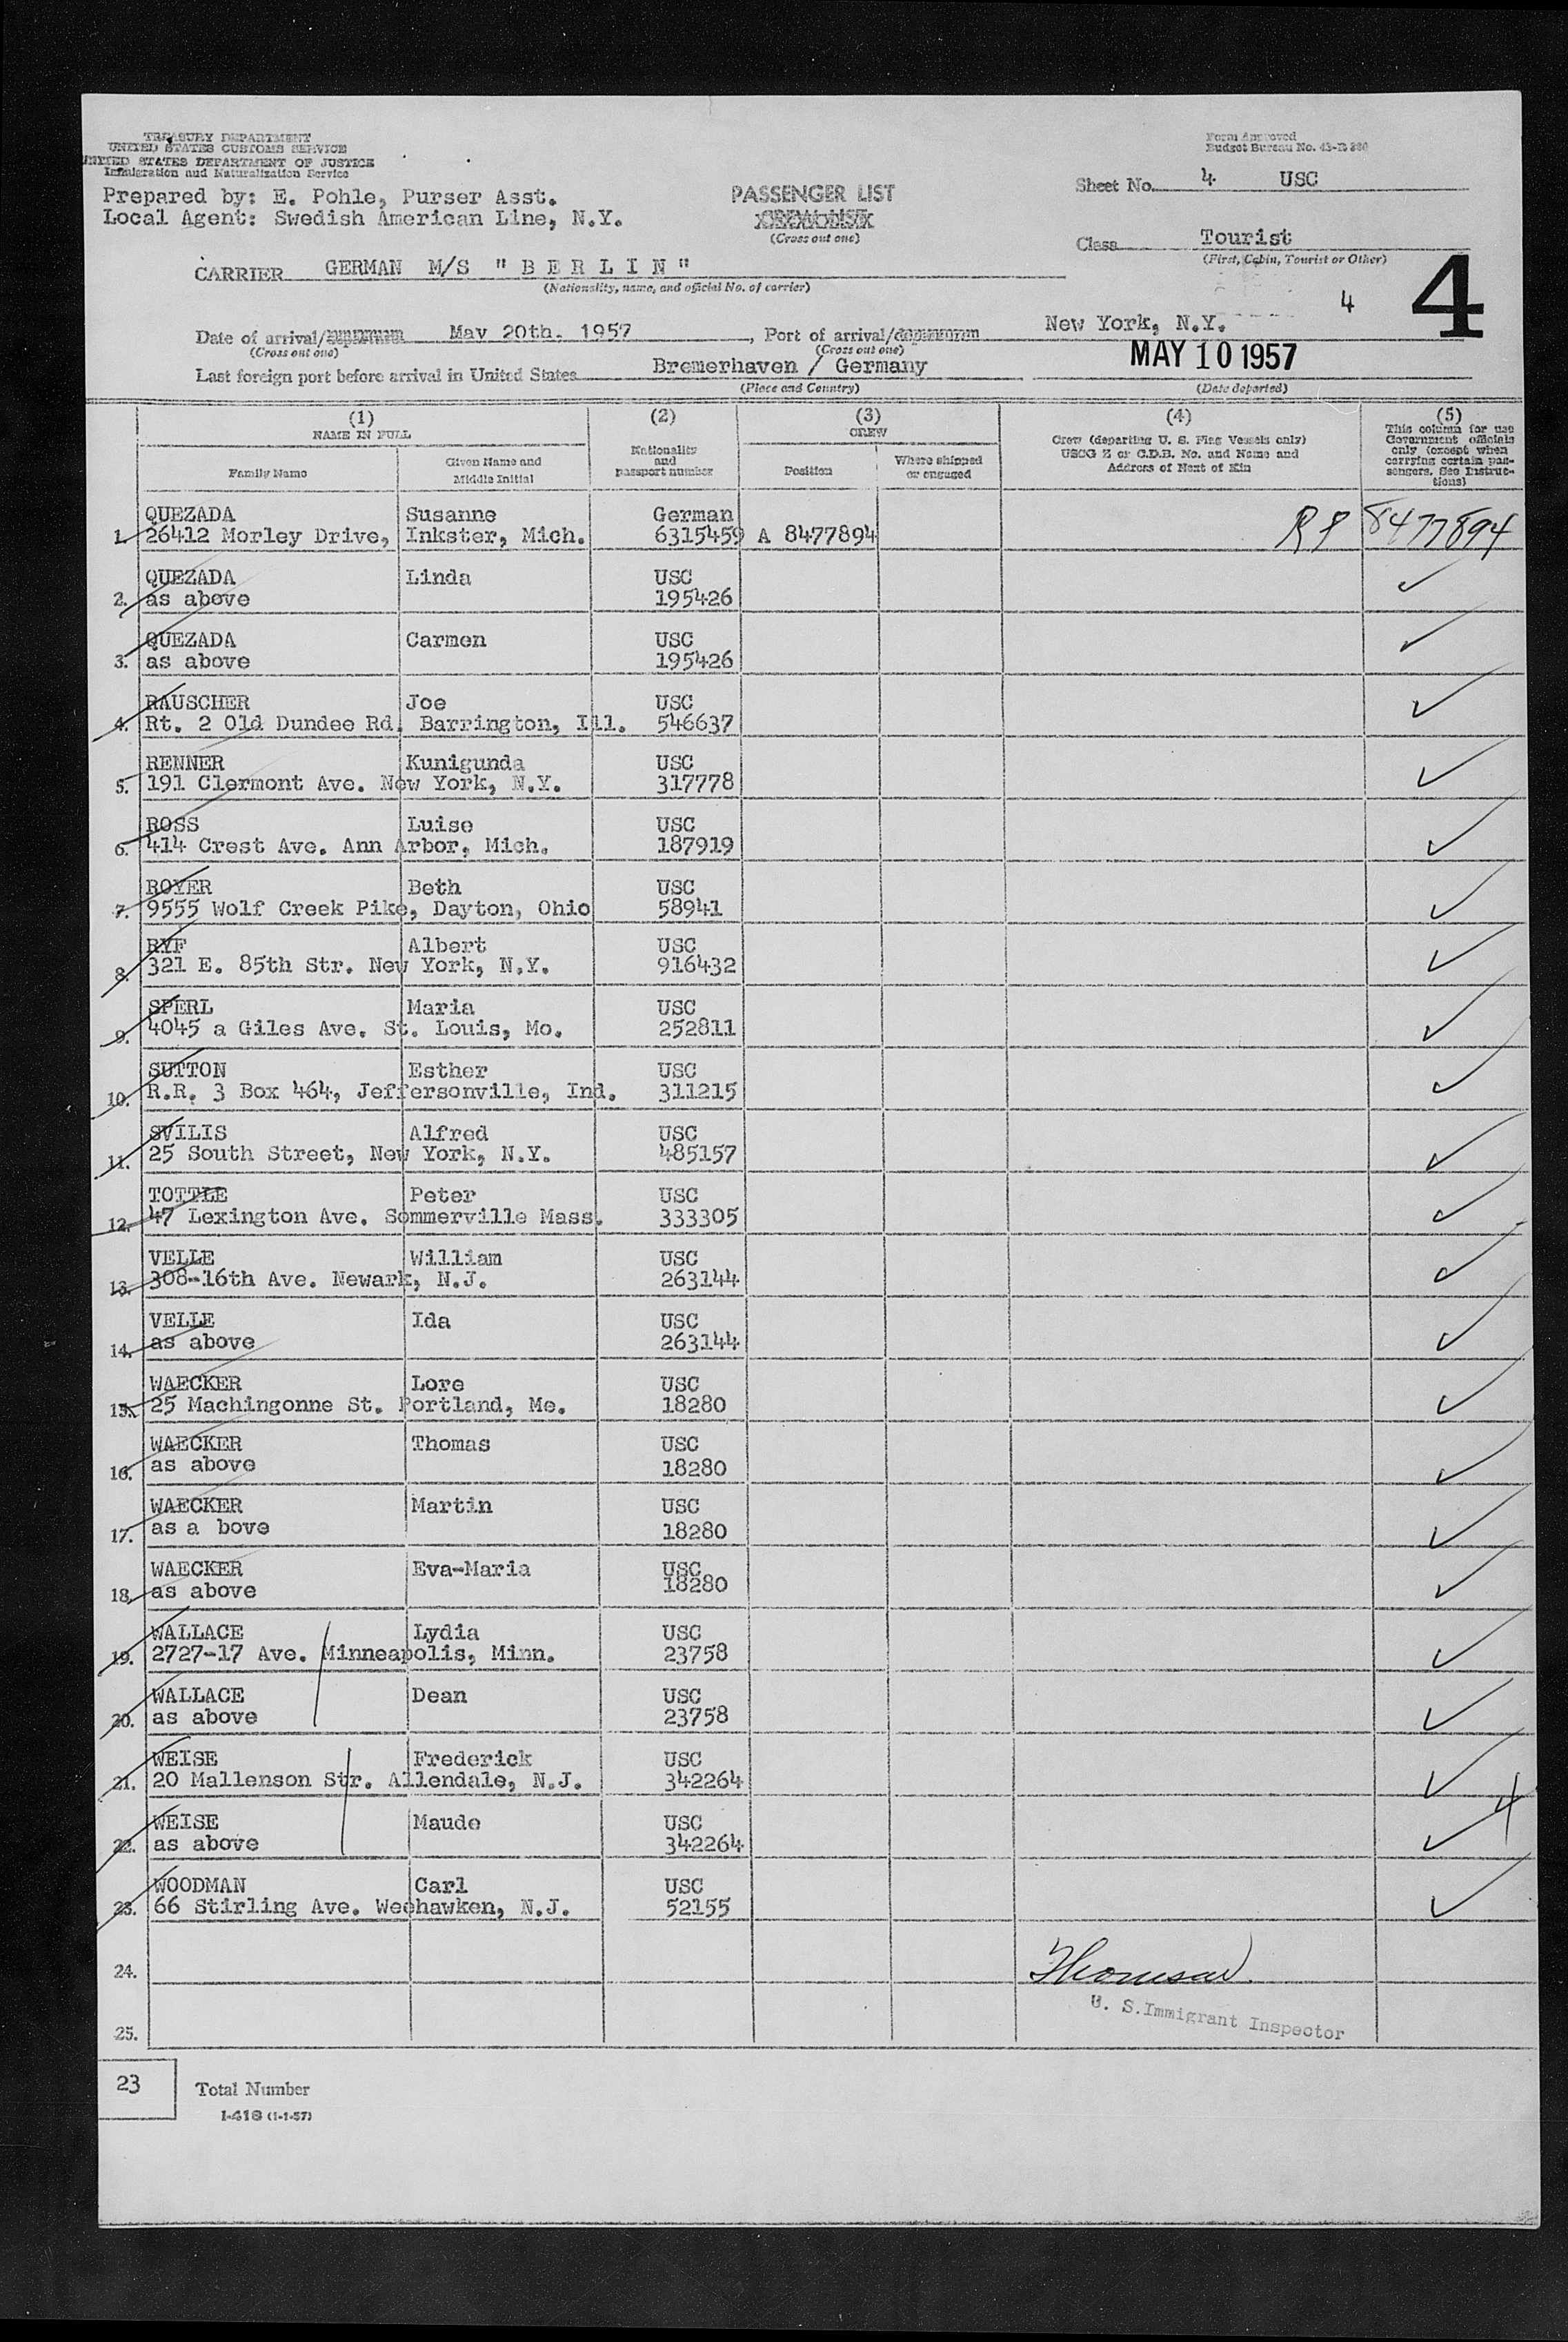 TREASURY DEPARTMENT
UNITED STATES CUSTOMS SERVICE
UNITED STATES DEPARTMENT OF JUSTICE
Immigration and Naturalization Service
Form Approved
Budget Bureau No. 43-R
Prepared by: E. Pohle, Purser Asst.
Local Agent: Swedish American Line, N.Y.
PASSENGER LIST
CREW LIST
(Cross out one)
Sheet No. 4 USC
Class Tourist
(First, Cabin, Tourist or Other)
CARRIER GERMAN M/S "BERLIN"
(Nationality, name, and official No. of carrier)
4 4
Date of arrival/ May 20th. 1957, Port of arrival/ New York, N.Y.
(Cross out one) (Cross out one)
Last foreign port before arrival in United States Bremerhaven / Germany MAY 10 1957
(Place and Country) (Date departed)
(1) (2) (3) (4) (5)
NAME IN FULL
Family Name
Given Name and Middle Initial
Nationality and passport number
CREW
Position
Where shipped or engaged
Crew (departing U. S. Flag Vessels only)
USCG Z or C.D.B. No. and Name and
Address of Next of Kin
This column for use
Government officials
only (except when
carrying certain pas-
sengers. See Instruc-
tions)
QUEZADA Susanne German
1. 26412 Morley Drive, Inkster, Mich. 6315459 A 8477894 RP 8477894
QUEZADA Linda USC
2. as above 195426
QUEZADA Carmen USC
3. as above 195426
RAUSCHER Joe USC
4. Rt. 2 Old Dundee Rd. Barrington, Ill. 546637
RENNER Kunigunda USC
5. 191 Clermont Ave. New York, N.Y. 317778
ROSS Luise USC
6. 414 Crest Ave. Ann Arbor, Mich. 187919
ROYER Beth USC
7. 9555 Wolf Creek Pike, Dayton, Ohio 58941
RYF Albert USC
8. 321 E. 85th Str. New York, N.Y. 916432
SPERL Maria USC
9. 4045 a Giles Ave. St. Louis, Mo. 252811
SUTTON Esther USC
10. R.R. 3 Box 464, Jeffersonville, Ind. 311215
SVILIS Alfred USC
11. 25 South Street, New York, N.Y. 485157
TOTTLE Peter USC
12. 47 Lexington Ave. Sommerville Mass. 333305
VELLE William USC
13. 308-16th Ave. Newark, N.J. 263144
VELLE Ida USC
14. as above 263144
WAECKER Lore USC
15. 25 Machingonne St. Portland, Me. 18280
WAECKER Thomas USC
16. as above 18280
WAECKER Martin USC
17. as a bove 18280
WAECKER Eva-Maria USC
18. as above 18280
WALLACE Lydia USC
19. 2727-17 Ave. Minneapolis, Minn. 23758
WALLACE Dean USC
20. as above 23758
WEISE Frederick USC
21. 20 Mallenson Str. Allendale, N.J. 342264
WEISE Maude USC
22. as above 342264
WOODMAN Carl USC
23. 66 Stirling Ave. Weehawken, N.J. 52155
24. Thomson
U. S. Immigrant Inspector
25.
23 Total Number
I-418 (1-1-57)